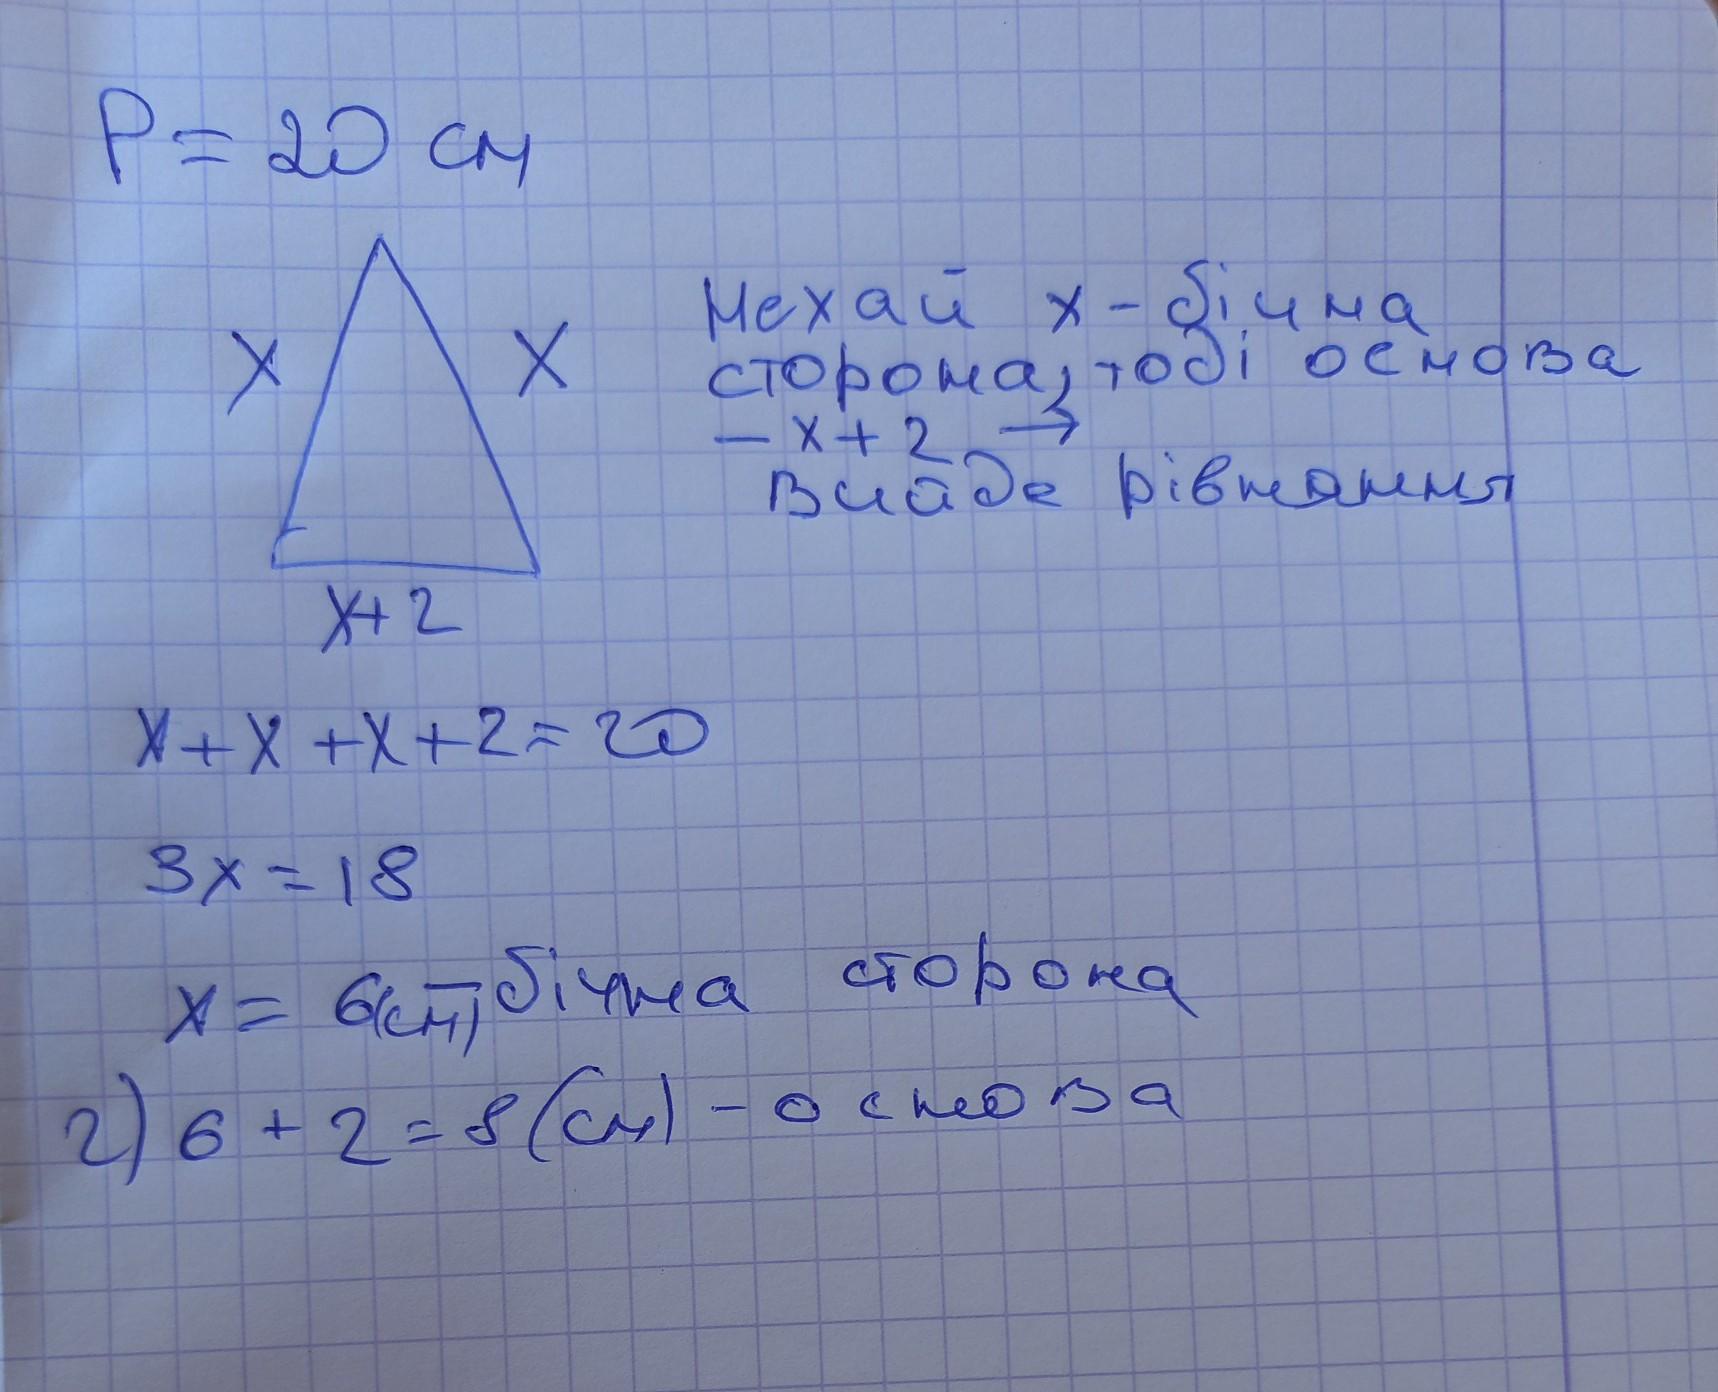 P = 20 см
x
x
x+2
Нехай x - бічна
сторона, тоді основа
— x + 2 →
Вийде рівняння
x + x + x + 2 = 20
3x = 18
x = 6(см) - бічна сторона
2) 6 + 2 = 8 (см) - основа